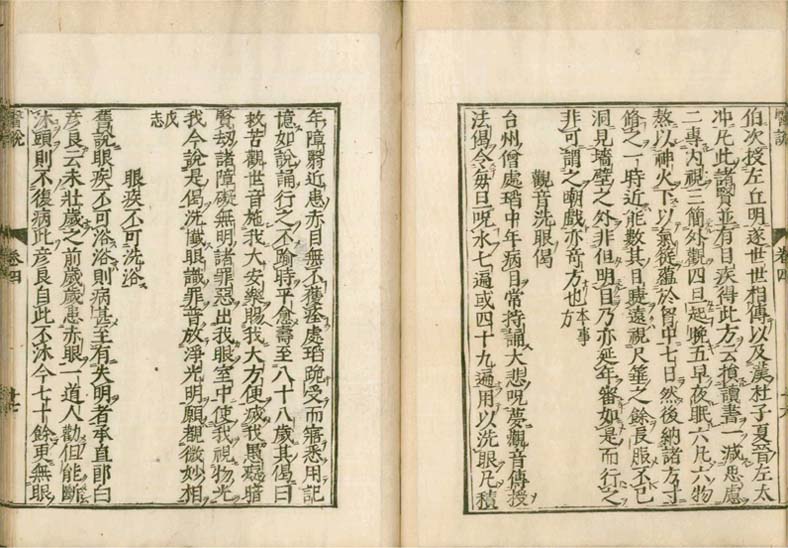 伯次授左丘明遂世世相傳以及漢杜子夏晉左太
冲凡此諸賢並有目疾得此方云損讀書一減思慮
二專内視三簡外觀四旦起晚五早夜眠六凡六物
熬以神火下以氣簁蘊於胷中七日然後納諸方寸
脩之一時近能數其目睫遠視尺箠之餘長服不已
洞見墻壁之外非但明目乃亦延年審如是而行之
非可謂之嘲戲亦竒方也本事方
觀音洗眼偈
台州僧處瑫中年病目常持誦大悲呪夢觀音傳授
法偈令每旦呪水七遍或四十九遍用以洗眼凡積
醫說
卷四
年障翳近患赤目無不獲痊處瑫䟽受而寤悉用記
憶如說誦行之不踰時平愈壽至八十八歲其偈曰
救苦觀世音施我大安樂賜我大方便滅我愚癡暗
賢刼諸障礙無明諸罪惡出我眼室中使我視物光
我今說是偈洗懺眼識罪普放淨光明願覩微妙相
戊志
眼疾不可洗浴
舊說眼疾不可浴浴則病甚至有失明者承直郎曰
彦良云未壯歲之前歲歲患赤眼一道人勸但能斷
沐頭則不復病此彦良自此不沐今七十餘更無眼
醫說
卷四